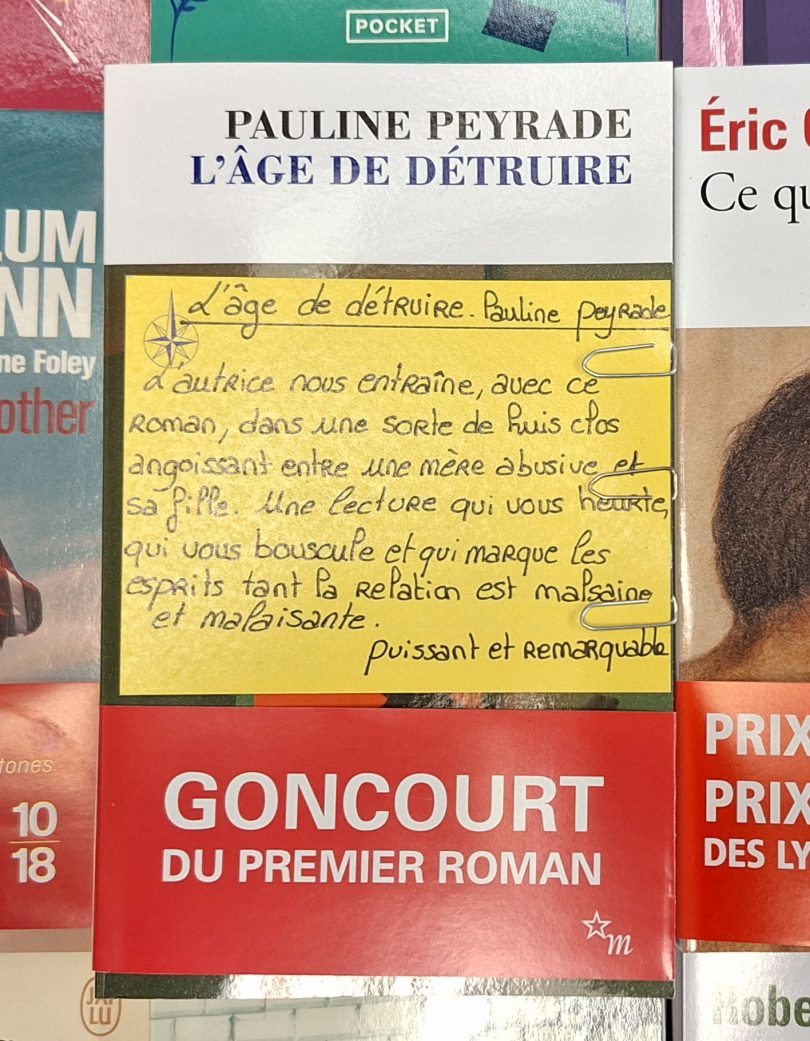 POCKET
PAULINE PEYRADE
L'ÂGE DE DÉTRUIRE
L'âge de détruire. Pauline Peyrade
L'autrice nous entraîne, avec ce
roman, dans une sorte de huis clos
angoissant entre une mère abusive et
sa fille. Une lecture qui vous heurte,
qui vous bouscule et qui marque les
esprits tant la relation est malsaine
et malaisante.
Puissant et remarquable
GONCOURT
DU PREMIER ROMAN
m
LUM
NN
ne Foley
other
tones
10
18
J'AI
LU
Éric
Ce qu
PRIX
PRIX
DES LY
Robe